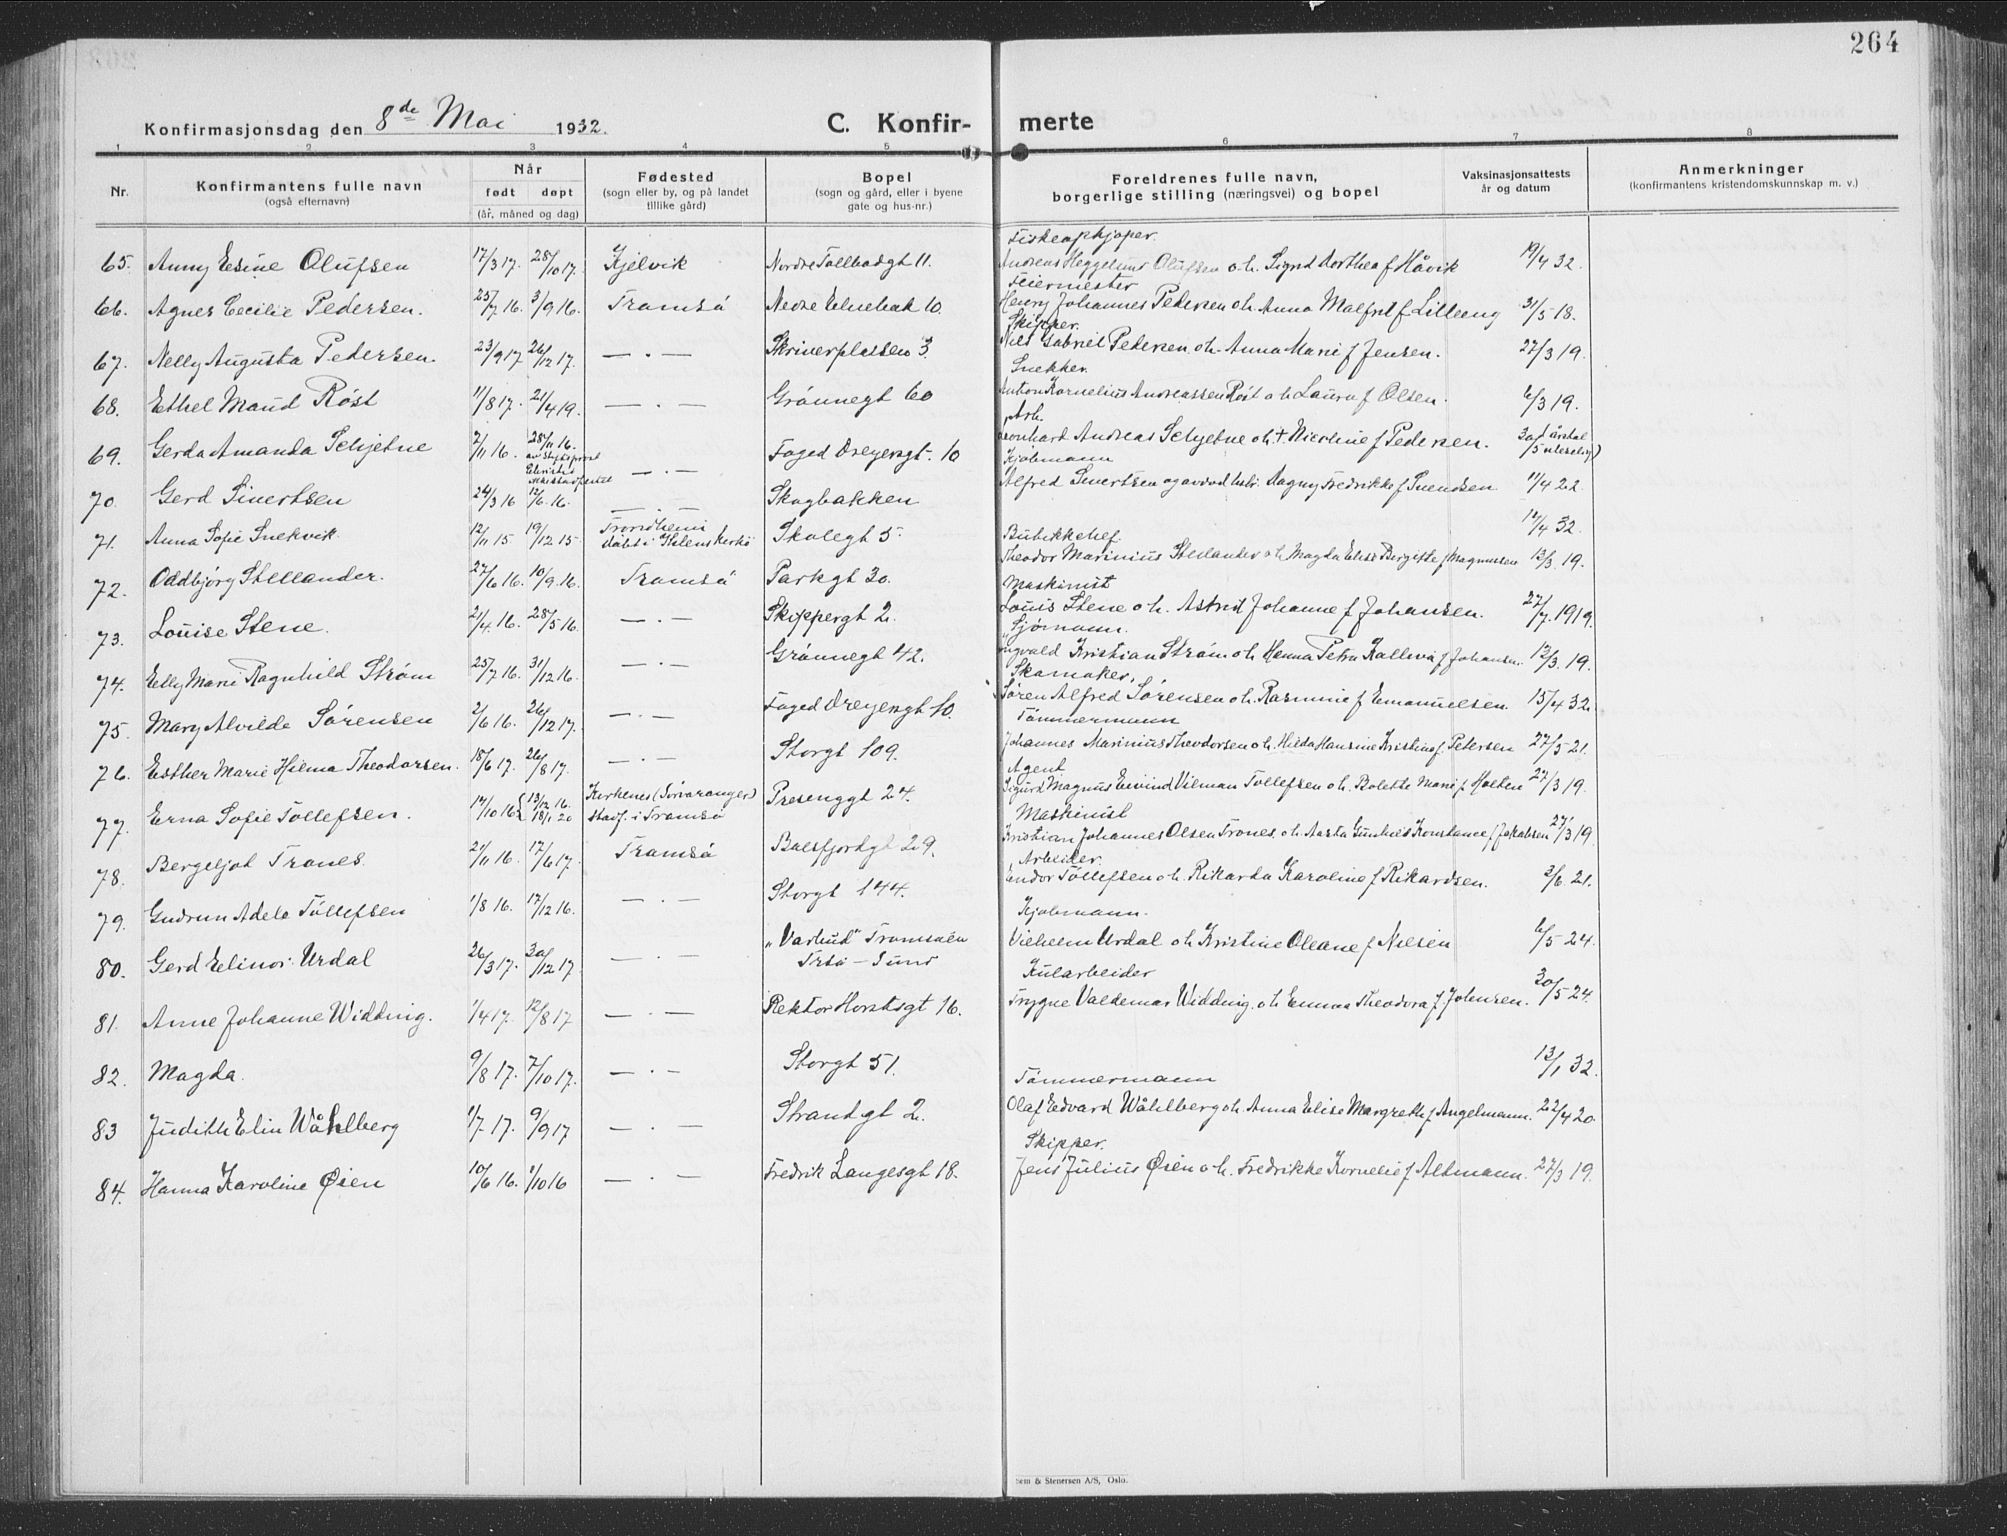 264
Konfirmasjonsdag den 8de Mai 1932. C. Konfir- merte
1 2 3 4 5 6 7 8
Nr. Konfirmantens fulle navn (også efternavn) Når født døpt (år, måned og dag) Fødested (sogn eller by, og på landet tillike gård) Bopel (sogn og gård, eller i byene gate og hus-nr.) Foreldrenes fulle navn, borgerlige stilling (næringsvei) og bopel Vaksinasjonsattests år og datum Anmerkninger (konfirmantens kristendomskunnskap m. v.)
Fiskeopkjøper.
65. Anny Esine Olufsen 17/3 17. 28/10 17. Kjelvik Nordre Tollbodgt 11. Andreas Heggelund Olufsen o.h. Sigrid Dorthea f Håvik 19/4 32.
Feiermester
66. Agnes Cecilie Pedersen. 25/7 16. 3/9 16. Tromsø 10. Henry Johannes Pedersen o.h. Anna Malfrid f Lilleeng 31/5 18.
Skipper.
67. Nelly Augusta Pedersen. 23/9 17 26/12 17. — . — Skriverplassen 3. Nils Gabriel Pedersen o.h. Anna Marie f Jensen. 27/3 19.
Snekker.
68. Ethel Maud Røst 11/8 17. 21/4 19. — . — Grønnegt 60 Anton Kornelius Andreassen Røst o.h Laura f Olsen. 6/3 19.
Arb.
69. Gerda Amanda Schjetne 2/11 16. 28/11 16. — . — Foged Dreyersgt. 10 Leonhard Andreas Schjetne o.h. † Nicoline f Pedersen. 30/5
Kjøbmann
70. Gerd Sivertsen 24/3 16 12/6. 16. — . — Skogbakken Alfred Sivertsen og Dagny Fredrikke f Svendsen 11/4 22.
71. Anna Sofie Snekvik. 12/11 15 19/12 15 Trondheim Skolegt 5. 12/4 32.
72. Oddbjørg Stellander. 27/6 16. 10/9. 16. Tromsø Parkgt 30. Theodor Marinius Stellander o.h. Magda Elise Bergitte f Magnussen 13/3. 19.
Maskinist
73. Louise Stene. 2/4. 16. 28/5 16. — . — Skippergt 2. Louis Stene o.h. Astrid Johanne f Johansen. 27/7. 1919.
Sjømann.
74. Elly Marie Ragnhild Strøm 25/7 16. 31/12 16. — . — Grønnegt 42. Kristian Strøm o.h. Hanna Petra f Johansen. 13/3. 19.
Skomaker.
75. Mary Alvilde Sørensen 2/6 16. 26/12 17. — . — Foged Dreyersgt 10. Søren Alfred Sørensen o.h. Rasmine f Emanuelsen. 15/4 32.
Tømmermann
76. Esther Marie Hilma Theodorsen. 18/6 17. 26/8 17. — . — Storgt 109. Johannes Marinius Theodorsen o.h. Hilda Hansine Kristine f. Petersen 27/5 21.
Agent
77. Erna Sofie Tollefsen. 14/10 16 { 13/12 16. 18/1 20 Kirkenes (Sørvaranger) stadf. i Tromsø 24. Sigurd Magnus Eivind Vilman Tollefsen o.h. Bolette Marie f Holten 27/3 19.
Maskinist
78. Bergeljot Trones. 21/11 16. 17/6 17. Tromsø Balsfjordgt 29. Kristian Johannes Olsen Trones o.h. Aasta Konstance f Jakobsen 27/3 19
Arbeider.
79. Gudrun Adele Tollefsen 1/8 16. 17/12 16. — . — Storgt 144. Endor Tollefsen o.h. Rikarda Karoline f Rikardsen. 2/6. 21.
Kjøbmann.
80. Gerd Elinor Urdal 26/3 17. 30/12 17 — . — Tromsøen Vilhelm Urdal o.h Kristine Oleane f Nilsen 6/5 24.
Kularbeider
81. Anne Johanne Widding. 1/4 17. 12/8 17 — . — Rektor Horstsgt 16. Trygve Valdemar Widding. o.h Emma Theodora f. Johnsen. 30/5 24.
82. Magda. 9/8 17. 7/10 17. — . — Storgt 51. 13/1 32.
Tømmermann
83 Judith Elin Wåhlberg 1/7 17. 9/9 17 — . — Strandgt 2. Olaf Edvard Wåhlberg o.h. Anna Elise Margreth f Angelmann. 22/4 20.
Skipper.
84. Hanna Karoline Øien 10/6 16. 1/10 16 — . — Fredrik Langesgt 18. Jens Julius Øien o.h. Fredrikke Kornelie f Altmann. 27/3 19.
Sem & Stenersen A/S, Oslo.